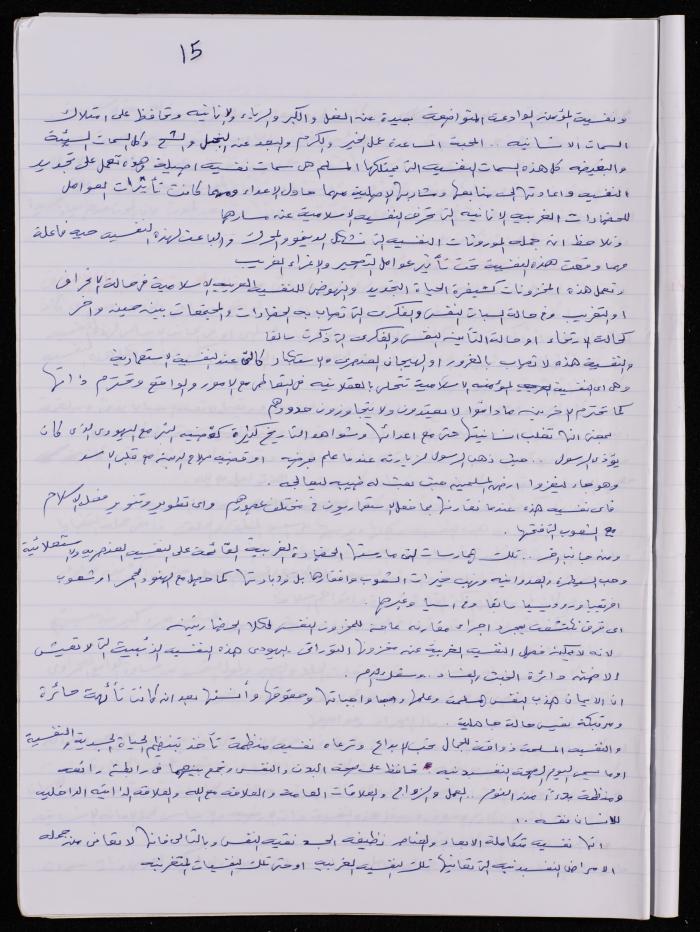 15
ونفسية المؤمن الوادعة المتواضعة بعيدة عن الغل والكبر والرياء والانانيه وتحافظ على امتلاك
السمات الانسانيه .. المحبة المساعدة عمل الخير والكرم والبعد عن البخل والشح وكل السمات السيئة
والبغيضه كل هذه السمات النفسية التي يمتلكها المسلم هي سمات نفسيه اصيلة وهذه تعمل على تجديد
النفسيه واعادتها الى منابعها ومشاربها الاصلية مهما حاول الاعداء ومهما كانت تأثيرات العوامل
للحضارات الغربيه الانانية التي تحرف النفسية الاسلامية عن مسارها
ونلاحظ ان جملة الموروثات النفسيه التي تشكل الدافع والمحرك والباعث لهذه النفسيه حيه فاعلة
مهما وقعت هذه النفسية تحت تأثير عوامل التصحير والاغراء الغريب
وتعمل هذه المخزونات كشيفرة الحياة التجديد والنهوض للنفسيه العربيه الاسلامية في حالة الانحراف
او التغريب وفي حالة السبات النفسي والفكري التي تصاب به الحضارات والمجتمعات بين حين واخر
كحالة الارتخاء او حالة النفسي والفكري التي ذكرت سالفا
والنفسية هذه لا تصاب بالغرور او الهيجان العنصري والاستكبار كالتي عند النفسية الاستعمارية
وهي اي النفسية المؤمنه الاسلامية تتحلى بالعقلانيه في التعاطي مع الامور والواقع وتحترم ذاتها
كما تحترم الاخرين ما داموا لا يعتدون ولا يتجاوزون حدودهم
بمعنى انها تغلب انسانيتها حتى مع اعدائها وشواهد التاريخ كثيرة كقضيه النبي مع اليهودي الذي كان
يؤذي الرسول .. حيث ذهب الرسول لزيارته عندما علم بمرضه او قضيه صلاح الدين مع قلب الاسد
وهو جاء ليغزوا ارض المسلمين حيث بعث له طبيبه ليعالجه .
فأي نفسيه هذه عندما نقارنها بما فعل الاستعماريون في مختلف عصورهم واي تطوير وتنوير فعل الاسلام
مع الشعوب التي فتحها .
ومن جانب اخر .. تلك ممارسات التي مارستها الحضارة الغربية القائمة على النفسية العنصريه والاستعلائية
وحب السيطرة والعدوانيه ونهب خيرات الشعوب وافقارها بل وابادتها كما حصل مع الهنود الحمر او شعوب
افريقيا وروديسيا سابقا وفي اسيا وغيرها .
اي فرق نكتشف بمجرد اجراء مقارنه عامه للمخزون النفسي لكلا الحضارتين
لانه لا يمكن فصل النفسية الغربية عن مخزونها التوراتي اليهودي هذه النفسية التي لا تعيش
الا ضمن دائرة الخبث والفساد . وسفك الدم .
ان الايمان هذب النفس المسلمة وعلمها واجباتها وحقوقها وأنسنها بعد ان كانت تائهة حائرة
ومرتبكة تعيش حالة جاهلية .
والنفسيه المسلمة ذواقة للجمال تحب الابداع وترعاه نفسية منظمة تأخذ بتنظيم الحياة الجسدية والنفسية
او ما يسمى اليوم الصحة النفسبدنيه تحافظ على صحة البدن والنفس وتجمع بينهما في رابطة رائعه
ومنظمة بدءاً من النوم .. العمل والزواج والعلاقات العامة والعلاقه مع الله والعلاقه الذاتية الداخليه
للانسان نفسه ..
انها نفسية متكاملة الابعاد والعناصر نظيفه الجسد نقيه النفس وبالتالي فانها لا تعاني من جملة
الامراض النفسبدنيه التي تعانيها تلك النفسية الغربيه او حتى تلك النفسيات المتغربنه